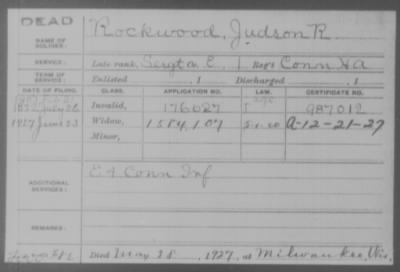 DEAD
NAME OF SOLDIER: Rockwood, Judson R.
SERVICE: Late rank, Sergt Co. E, 1 Reg't Conn H A
TERM OF SERVICE: Enlisted , 1 Discharged , 1
DATE OF FILING. CLASS. APPLICATION NO. LAW. CERTIFICATE NO.
Invalid, 176027 987012
1927 June 23 Widow, 1584,107 5-1-20 A-12-21-27
Minor,
ADDITIONAL SERVICES: E 4 Conn Inf
REMARKS:
Died May 28, 1927, at Milwaukee, Wis.